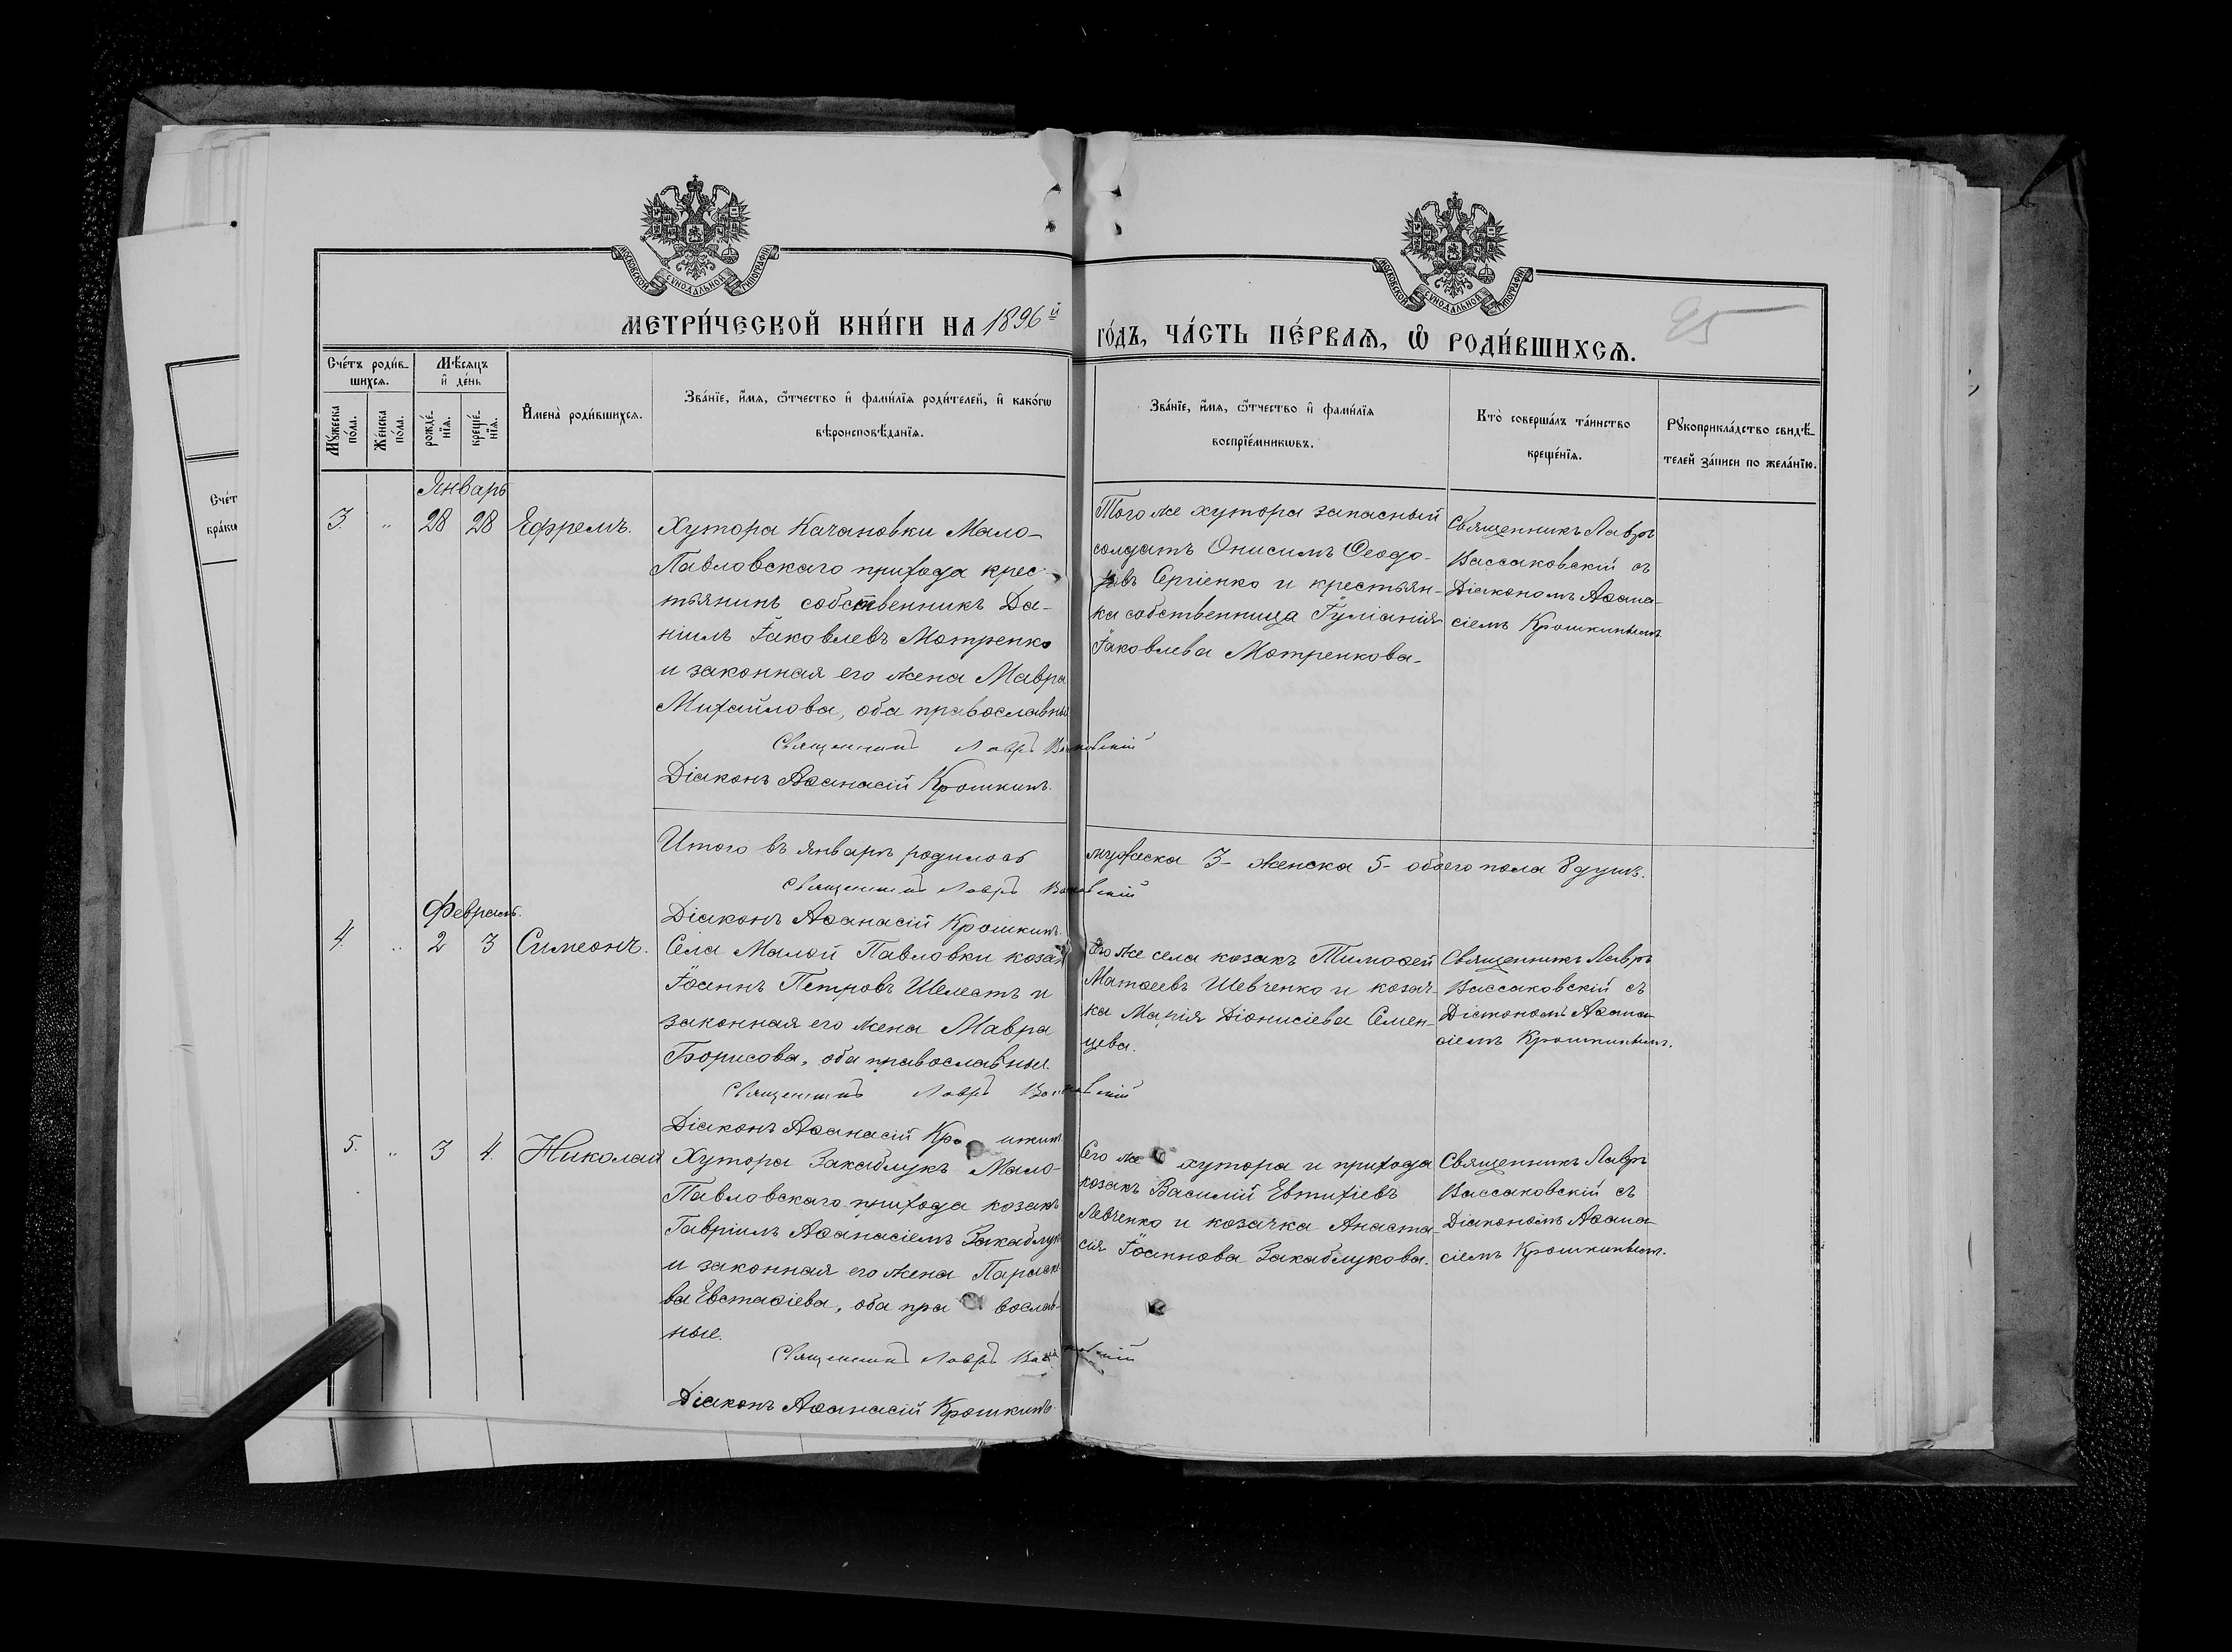 МОСКОВСКОЙ СѴНОДАЛЬНОЙ ТИПОГРАФІИ
МОСКОВСКОЙ СѴНОДАЛЬНОЙ ТИПОГРАФІИ
МЕТРИ́ЧЕСКОЙ КНИ́ГИ НА 1896й
ГО́ДЪ, ЧА́СТЬ ПЕ́РВАѦ, Ѡ РОДИ́ВШИХСѦ.
25
Сче́тъ роди́в-
шихся.
Мѣ́сяцъ
и де́нь
Мꙋ́жеска
по́ла.
Же́нска
по́ла.
рожде́-
нїѧ.
креще́-
нїѧ.
И́мена̀ роди́вшихсѧ.
Зва́нїе, и́мѧ, ѻ҆́тчество и фами́лїѧ роди́телей, и како́гѡ
вѣроисповѣ́данїѧ.
Зва́нїе, и́мѧ, ѻ҆́тчество и фами́лїѧ
воспрїе́мникѡвъ.
Кто̀ соверша́лъ та́инство
креще́нїѧ.
Рꙋкоприкла́дство свидѣ́-
телей за́писи по жела́нїю.
Сче́т
бра́ки
Январь
3. „ 28 28 Ефремъ.
Хутора Качановки Мало-
Павловскаго прихода крес-
тьянинъ собственникъ Да-
ніилъ Іаковлевъ Мотренко
и законная его жена Мавра
Михайлова, оба православные
Священникъ Лавръ Вассаковскій
Діаконъ Аѳанасій Крошкинъ.
Того же хутора запасный
солдатъ Онисимъ Ѳеодо-
ровъ Сергіенко и крестьян-
ка собственница Іуліанія
Іаковлева Мотренкова.
Священникъ Лавръ
Вассаковскій съ
Діакономъ Аѳана-
сіемъ Крошкинымъ
Итого въ январѣ родилось
мужеска 3- женска 5- обоего пола 8 душъ.
Священникъ Лавръ Вассаковскій
Діаконъ Аѳанасій Крошкинъ.
Февраль.
4. „ 2 3 Симеонъ.
Села Малой Павловки козакъ
Іоаннъ Петровъ Шелестъ и
законная его жена Мавра
Борисова, оба православные.
Священникъ Лавръ Вассаковскій
Діаконъ Аѳанасій Крошкинъ
Его же села козакъ Тимоѳей
Матѳеевъ Шевченко и козач-
ка Марія Діонисіева Семен-
цева.
Священникъ Лавръ
Вассаковскій съ
Діакономъ Аѳана-
сіемъ Крошкинымъ.
5. „ 3 4. Николай
Хутора Закаблукъ Мало-
Павловскаго прихода козакъ
Гавріилъ Аѳанасіевъ Закаблукъ
и законная его жена Параске-
ва Евстаѳіева, оба православ-
ные.
Священникъ Лавръ Вассаковскій
Діаконъ Аѳанасій Крошкинъ.
Его же хутора и прихода
козакъ Василій Евтихіевъ
Левченко и козачка Анаста-
сія Іоаннова Закаблукова.
Священникъ Лавръ
Вассаковскій съ
Діакономъ Аѳана-
сіемъ Крошкинымъ.